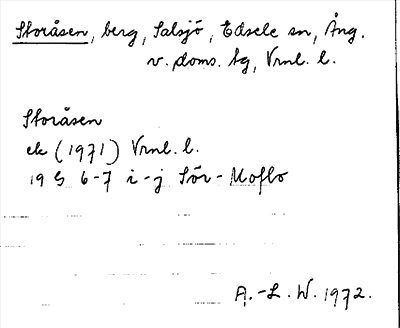 Storåsen, berg, Salsjö, Edsele sn, Ång.
v. doms. tg, Vrnl. l.
Storåsen
ek (1971) Vrnl. l.
19 G 6-7 i-j Sör-Moflo
A.-L. W. 1972.